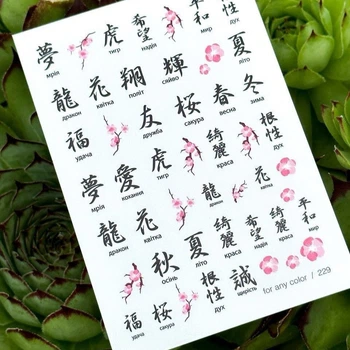 夢
мрія
虎
тигр
希望
надія
平和
мир
根性
дух
龍
дракон
花
квітка
翔
політ
輝
сяйво
夏
літо
福
удача
友
дружба
桜
сакура
春
весна
冬
зима
夢
мрія
愛
кохання
虎
тигр
綺麗
краса
根性
дух
龍
дракон
花
квітка
龍
дракон
綺麗
краса
希望
надія
花
квітка
綺麗
краса
平和
мир
秋
осінь
夏
літо
福
удача
桜
сакура
根性
дух
誠
щирість
for any color / 229